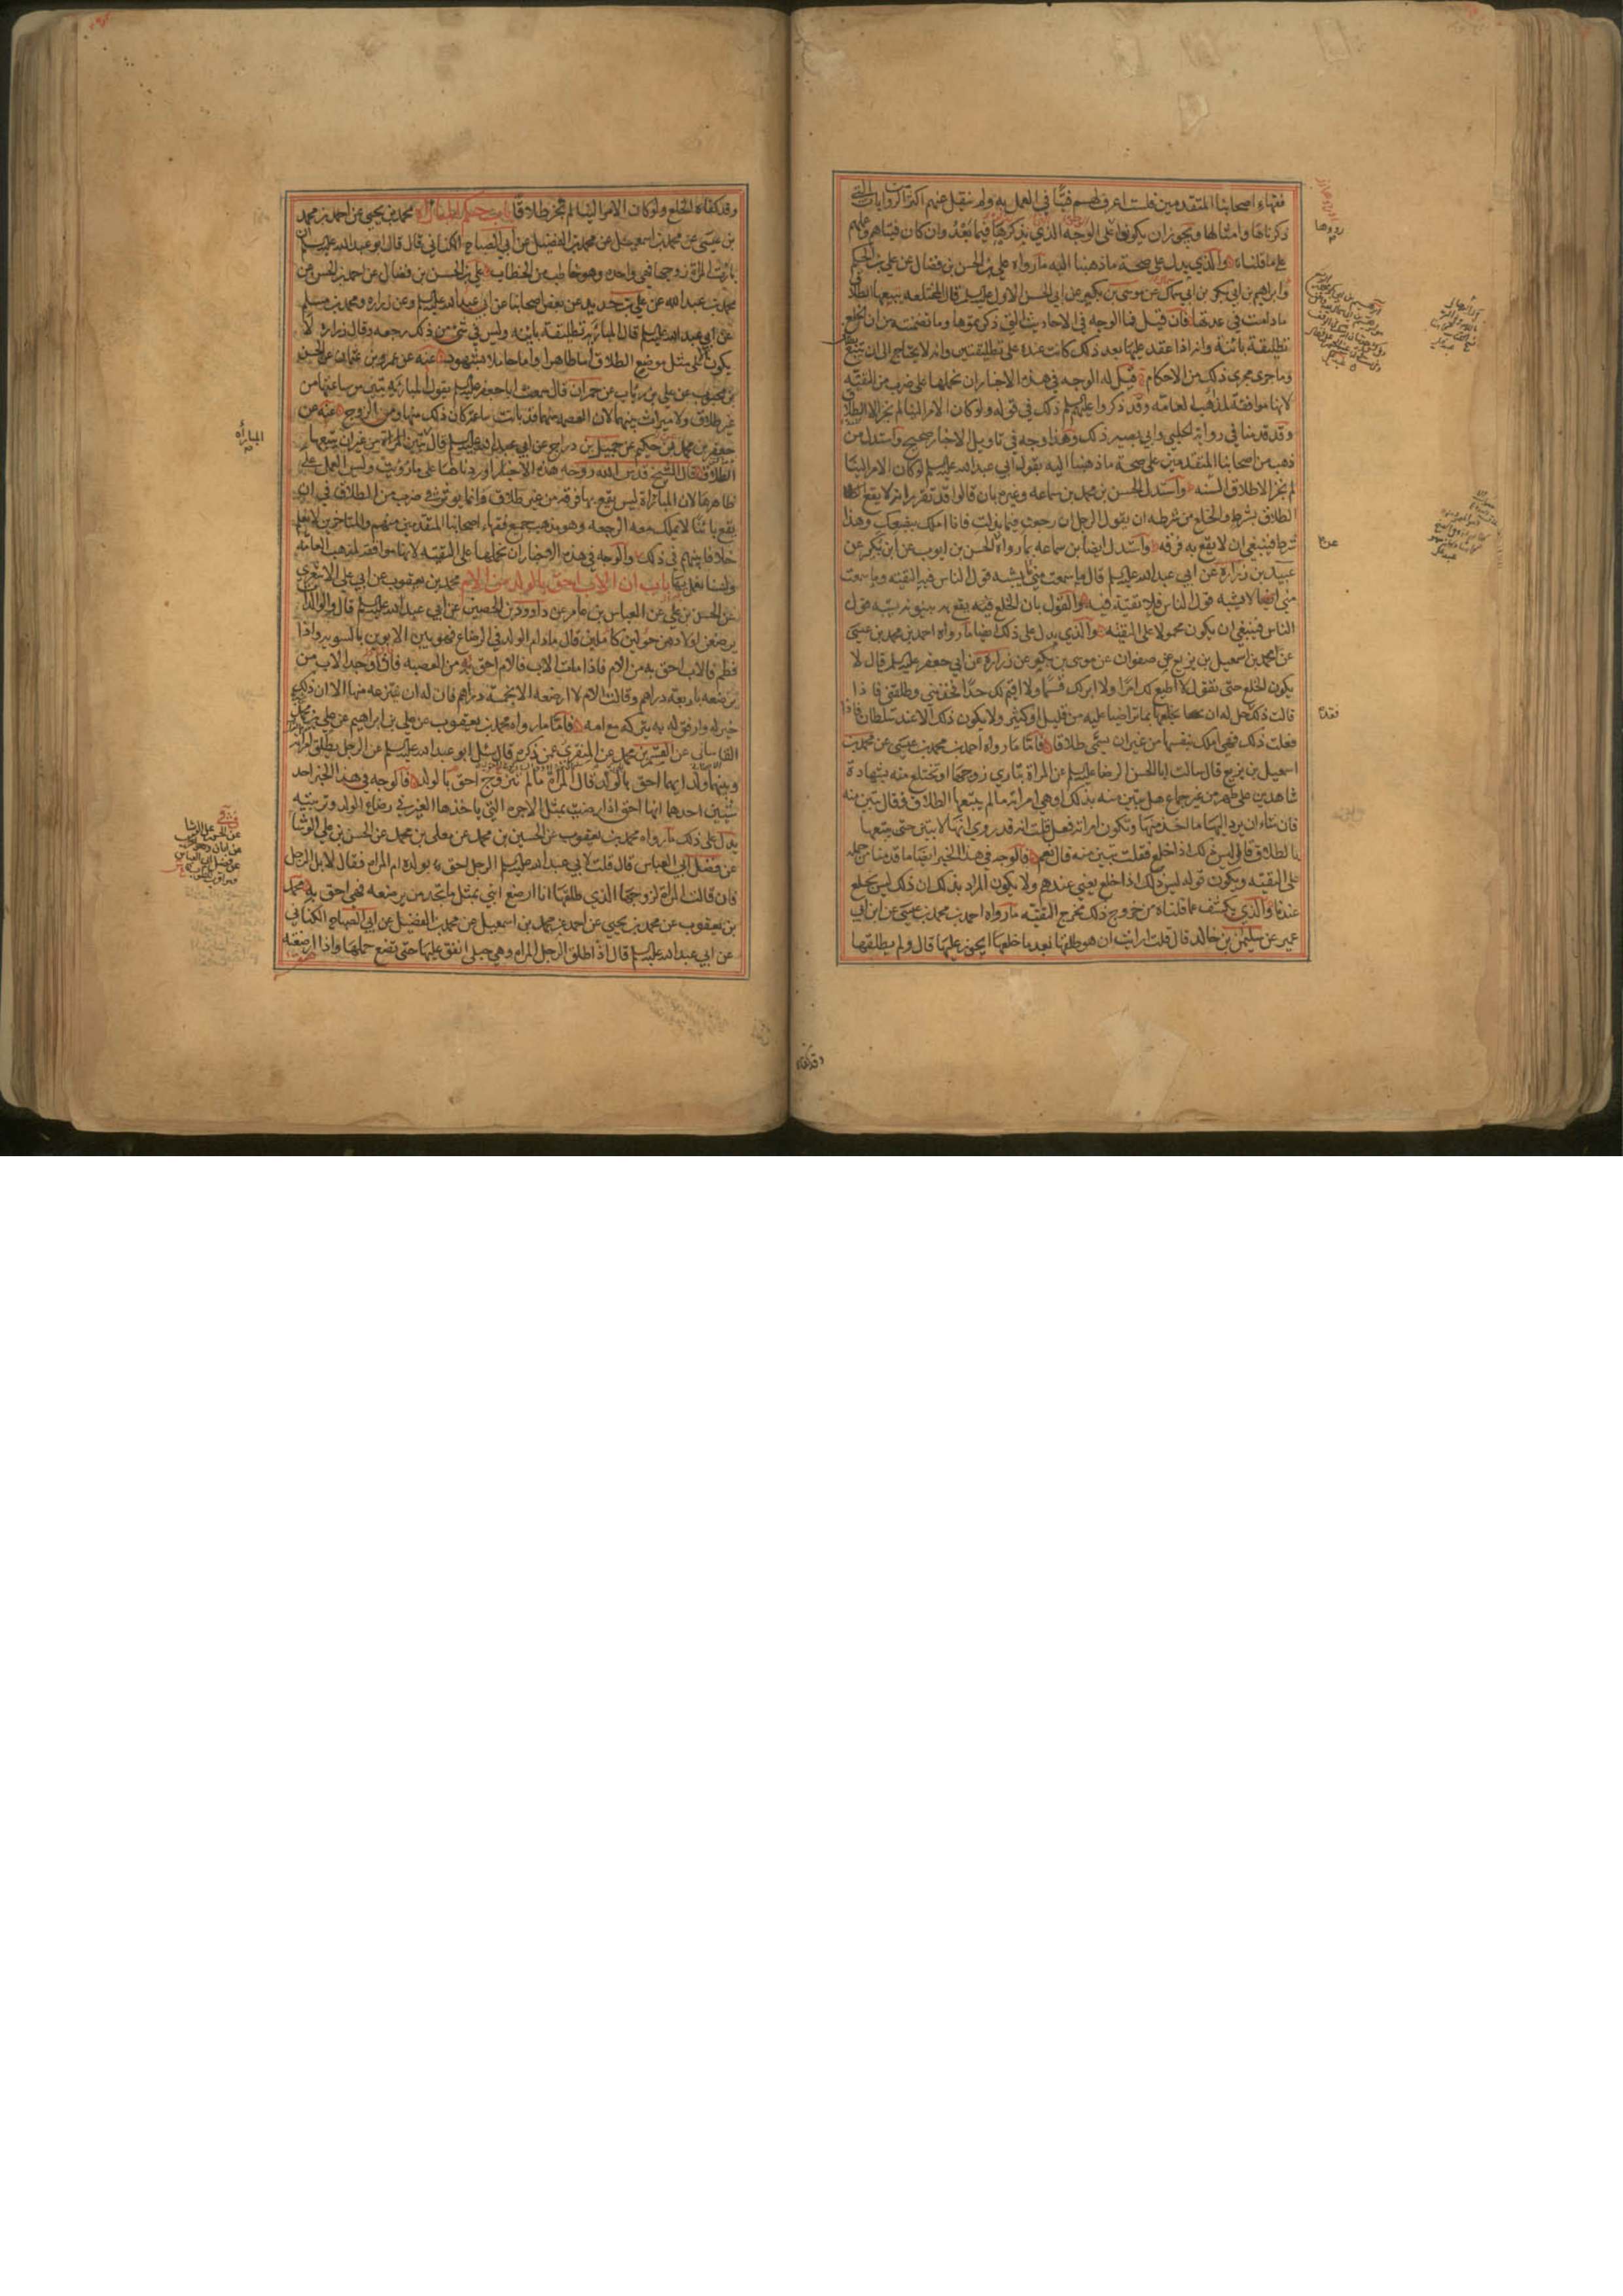 فقهاء اصحابنا المتقدمين فلست اعرف لهم فتيا في العمل به ولم ينقل عنهم اكثر من الروايات التي
ذكرناها وامثالها ويجوز ان يكونوا على الوجه الذي نذكره فيما بعد وان كان فتياهم وعملهم
على ما قلناه والذي يدل على صحة ما ذهبنا اليه ما رواه علي بن الحسن بن فضال عن علي بن الحكم
وابراهيم بن ابي بكر بن ابي سماك عن موسى بن بكر عن ابي الحسن الاول عليه السلم قال المختلعه يتبعها الطلاق
ما دامت في عدتها فان قيل فما الوجه في الاحاديث التي ذكرتموها وما تضمنته من ان الخلع
تطليقة بائنة وانه اذا عقد عليها بعد ذلك كانت عنده على تطليقتين وانه لا يحتاج الى ان يتبع
وما جرى مجرى ذلك من الاحكام قيل له الوجه في هذه الاخبار ان نحملها على ضرب من التقيه
لانها موافقة لمذاهب العامه وقد ذكروا عليهم السلم ذلك في قوله ولو كان الامر الينا لم نجز الا الطلاق
وقد قدمنا في رواية الحلبي وابي بصير ذلك وهذا وجه في تاويل الاخبار صحيح واستدل من
ذهب من اصحابنا المتقدمين على صحة ما ذهبنا اليه بقول ابي عبد الله عليه السلم لو كان الامر الينا
لم نجز الا طلاق السنه واستدل الحسن بن محمد بن سماعه وغيره بان قالوا قد تقرر انه لا يقع
الطلاق بشرط والخلع من شرطه ان يقول الرجل ان رجعت فيما بذلت فانا املك ببضعك وهذا
شرط فينبغي ان لا يقع به فرقه واستدل ايضا بن سماعه بما رواه الحسن بن ايوب عن ابن بكير عن
عبيد بن زرارة عن ابي عبد الله عليه السلم قال ما سمعت مني يشبه قول الناس فيه التقيه وما سمعت
مني لا يشبه قول الناس فلا تقية فيه والقول بان الخلع فيه يقع به بينونه يشبه قول
الناس فينبغي ان يكون محمولا على التقيه والذي يدل على ذلك ايضا ما رواه احمد بن محمد بن عيسى
عن محمد بن اسمعيل بن بزيع عن صفوان عن موسى بن بكير عن زرارة عن ابي جعفر عليه السلم قال لا
يكون الخلع حتى تقول لا اطيع لك امرا ولا ابر لك قسما ولا اقيم لك حدا فخذ مني وطلقني فاذا
قالت ذلك حل له ان يخلعها بما تراضيا عليه من قليل او كثير ولا يكون ذلك الا عند سلطان فاذا
فعلت ذلك فهي املك بنفسها من غير ان يسمى طلاقا فاما ما رواه احمد بن محمد بن عيسى عن محمد بن
اسمعيل بن بزيع قال سالت ابا الحسن الرضا عليه السلم عن المراة تباري زوجها او تختلع منه بشهادة
شاهدين على طهر من غير جماع هل تبين منه بذلك او هي امراته ما لم يتبعها الطلاق فقال تبين منه
فان شاء ان يرد اليها ما اخذ منها وتكون امراته فعل قلت انه قد روي انها لا تبين حتى يتبعها
بالطلاق قال ليس ذلك اذا خلع فقلت تبين منه قال نعم فالوجه في هذا الخبر ايضا ما قدمناه من حمله
على التقيه ويكون قوله ليس ذلك اذا خلع يعني عندهم ولا يكون المراد بذلك ان ذلك ليس بخلع
عندنا والذي يكشف عما قلناه من خروج ذلك مخرج التقيه ما رواه احمد بن محمد بن عيسى عن ابن ابي
عمير عن سليمان بن خالد قال قلت ارايت ان هو طلقها بعد ما خلعها ايجوز عليها قال ولم يطلقها
وقد كفاه
وقد كفاه الخلع ولو كان الامر الينا لم نجز طلاقا باب حكم المباراة محمد بن يحيى عن احمد بن محمد
بن عيسى عن محمد بن اسمعيل عن محمد بن الفضيل عن ابي الصباح الكناني قال قال ابو عبد الله عليه السلم ان
بارئت المراة زوجها فهي واحده وهو خاطب من الخطاب علي بن الحسن بن فضال عن احمد بن الحسن عن
محمد بن عبد الله عن علي بن حديد عن بعض اصحابنا عن ابي عبد الله عليه السلم وعن زراره ومحمد بن مسلم
عن ابي عبد الله عليه السلم قال المباراة تطليقة بائنه وليس في شئ من ذلك رجعه وقال زرارة لا
يكون الا على مثل موضع الطلاق اما طاهرا واما حاملا بشهود عنه عن عمرو بن عثمان عن الحسن
بن محبوب عن علي بن رئاب عن حمران قال سمعت ابا جعفر عليه السلم يقول المبارئه تبين من ساعتها من
غير طلاق ولا ميراث بينهما لان العصمه منهما قد بانت ساعة كان ذلك منها ومن الزوج عنه عن
جعفر بن محمد بن حكيم عن جميل بن دراج عن ابي عبد الله عليه السلم قال المباراة من غير ان يتبعها
الطلاق قال الشيخ قدس الله روحه هذه الاخبار اوردناها على ما رويت وليس العمل على
ظاهرها لان المباراة ليس يقع بها فرقة من غير طلاق وانما يوثر في ضرب من الطلاق في ان
يقع بائنا لا يملك معه الرجعه وهو مذهب جميع فقهاء اصحابنا المتقدمين منهم والمتاخرين لا نعلم
خلافا بينهم في ذلك والوجه في هذه الاخبار ان نحملها على التقيه لانها موافقة لمذهب العامه
ولسنا نعمل بها باب ان الاب احق بالولد من الام محمد بن يعقوب عن ابي علي الاشعري
عن الحسن بن علي عن العباس بن عامر عن داود بن الحصين عن ابي عبد الله عليه السلم قال والوالدات
يرضعن اولادهن حولين كاملين قال ما دام الولد في الرضاع فهو بين الابوين بالسويه فاذا
فطم فالاب احق به من الام فاذا مات الاب فالام احق به من العصبه فان وجد الاب من
يرضعه باربعة دراهم وقالت الام لا ارضعه الا بخمسة دراهم فان له ان ينزعه منها الا ان ذلك
خير له وارفق به يتركه مع امه فاما ما رواه محمد بن يعقوب عن علي بن ابراهيم عن علي بن محمد
القاساني عن القسم بن محمد عن المنقري عمن ذكره قال سئل ابو عبد الله عليه السلم عن الرجل يطلق امراته
وبينهما ولد ايهما احق بالولد قال المراة ما لم تتزوج احق بالولد فالوجه في هذا الخبر احد
شيئين احدهما انها احق اذا رضيت بمثل الاجره التي ياخذها الغير في رضاع الولد وتربيته
يدل على ذلك ما رواه محمد بن يعقوب عن الحسين بن محمد عن معلى بن محمد عن الحسن بن علي الوشا
عن فضل ابي العباس قال قلت لابي عبد الله عليه السلم الرجل احق بولده ام المراه فقال لا بل الرجل
فان قالت المراة لزوجها الذي طلقها انا ارضع ابني بمثل ما تجد من يرضعه فهي احق به محمد
بن يعقوب عن محمد بن يحيى عن احمد بن محمد بن اسمعيل عن محمد بن الفضيل عن ابي الصباح الكناني
عن ابي عبد الله عليه السلم قال اذا طلق الرجل المراه وهي حبلى انفق عليها حتى تضع حملها واذا ارضعته
المباراه